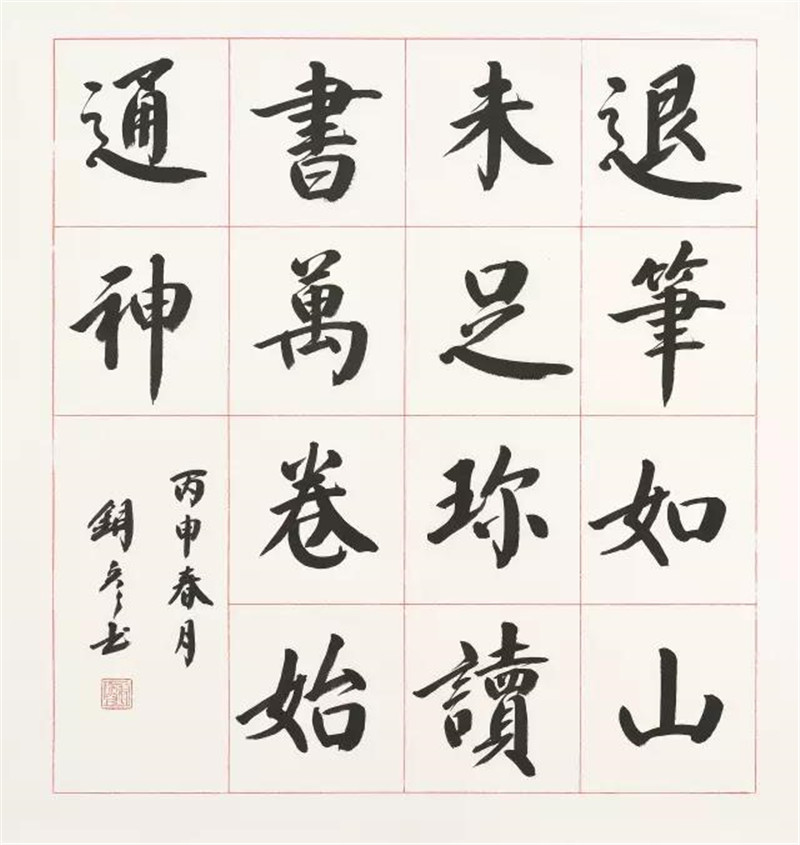 退筆如山
未足珎讀
書萬卷始
通神
丙申春月
銅彦书